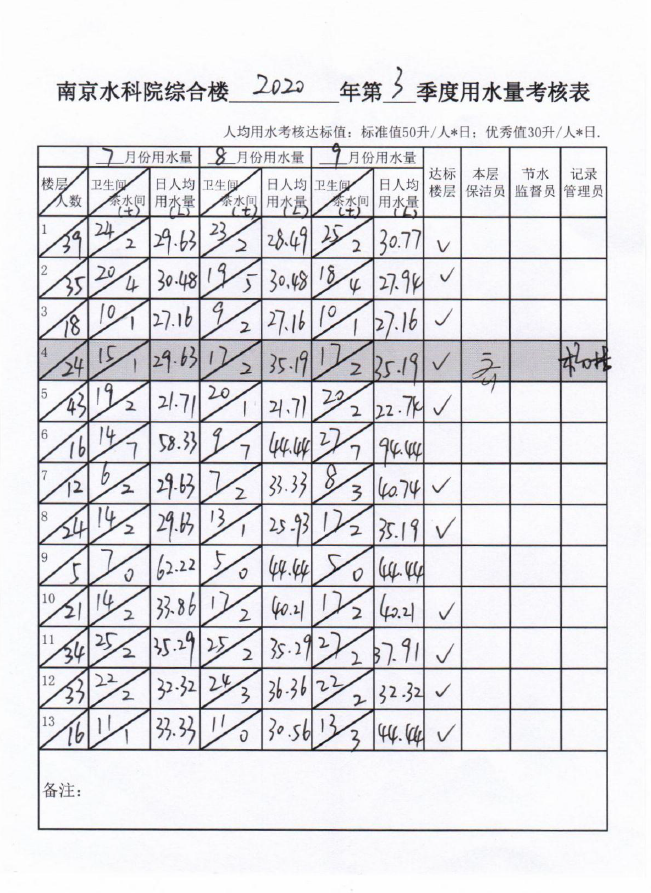 南京水科院综合楼 2020 年第 3 季度用水量考核表
人均用水考核达标值：标准值50升/人*日；优秀值30升/人*日.
7 月份用水量 8 月份用水量 9 月份用水量 达标楼层 本层保洁员 节水监督员 记录管理员
楼层 人数 卫生间 茶水间 (t) 日人均用水量 (L) 卫生间 茶水间 (t) 日人均用水量 (L) 卫生间 茶水间 (t) 日人均用水量 (L)
1 39 24 2 29.63 23 2 28.49 25 2 30.77 ✓
2 35 20 4 30.48 19 5 30.48 18 4 27.94 ✓
3 18 10 1 27.16 9 2 27.16 10 1 27.16 ✓
4 24 15 1 29.63 17 2 35.19 17 2 35.19 ✓
5 43 19 2 21.71 20 1 21.71 20 2 22.74 ✓
6 16 14 7 58.33 9 7 44.44 27 7 94.44
7 12 6 2 29.63 7 2 33.33 8 3 40.74 ✓
8 24 14 2 29.63 13 1 25.93 17 2 35.19 ✓
9 5 7 0 62.22 5 0 44.44 5 0 44.44
10 21 14 2 33.86 17 2 40.21 17 2 40.21 ✓
11 34 25 2 35.29 25 2 35.29 27 2 37.91 ✓
12 33 22 2 32.32 24 3 36.36 22 2 32.32 ✓
13 16 11 1 33.33 11 0 30.56 13 3 44.44 ✓
备注：